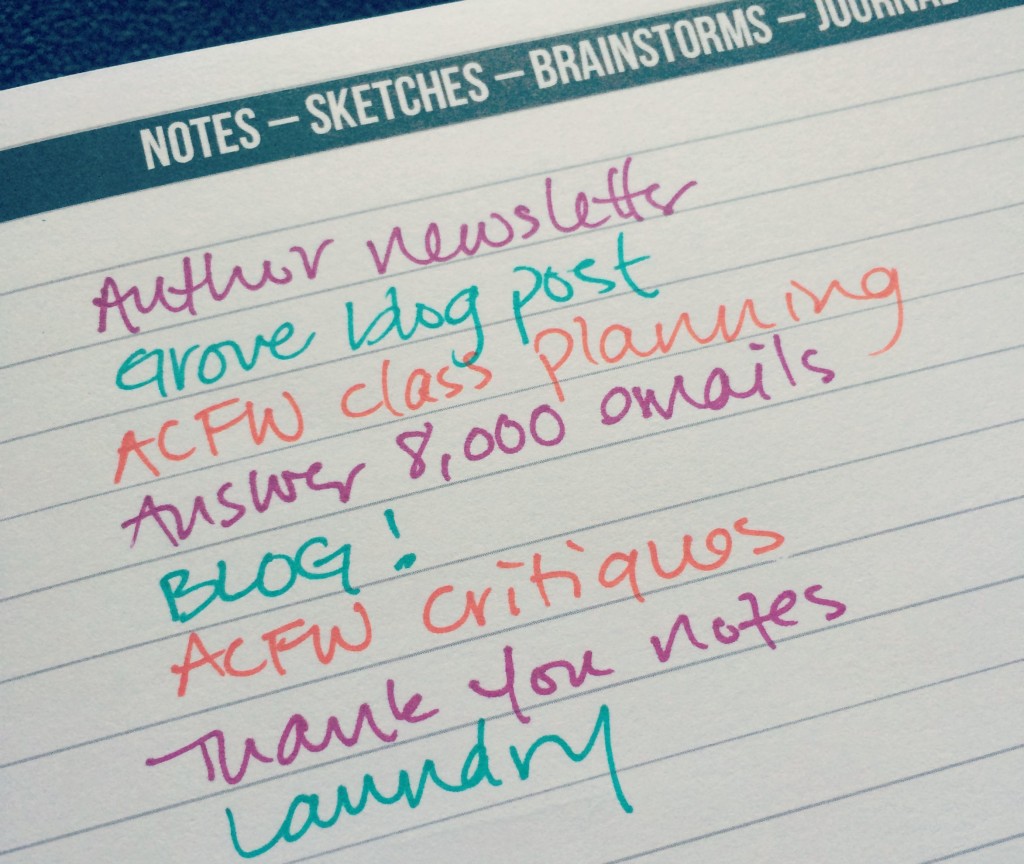 NOTES – SKETCHES – BRAINSTORMS – JOURNAL
Author newsletter
Grove blog post
ACFW class planning
Answer 8,000 emails
BLOG!
ACFW critiques
Thank You notes
Laundry